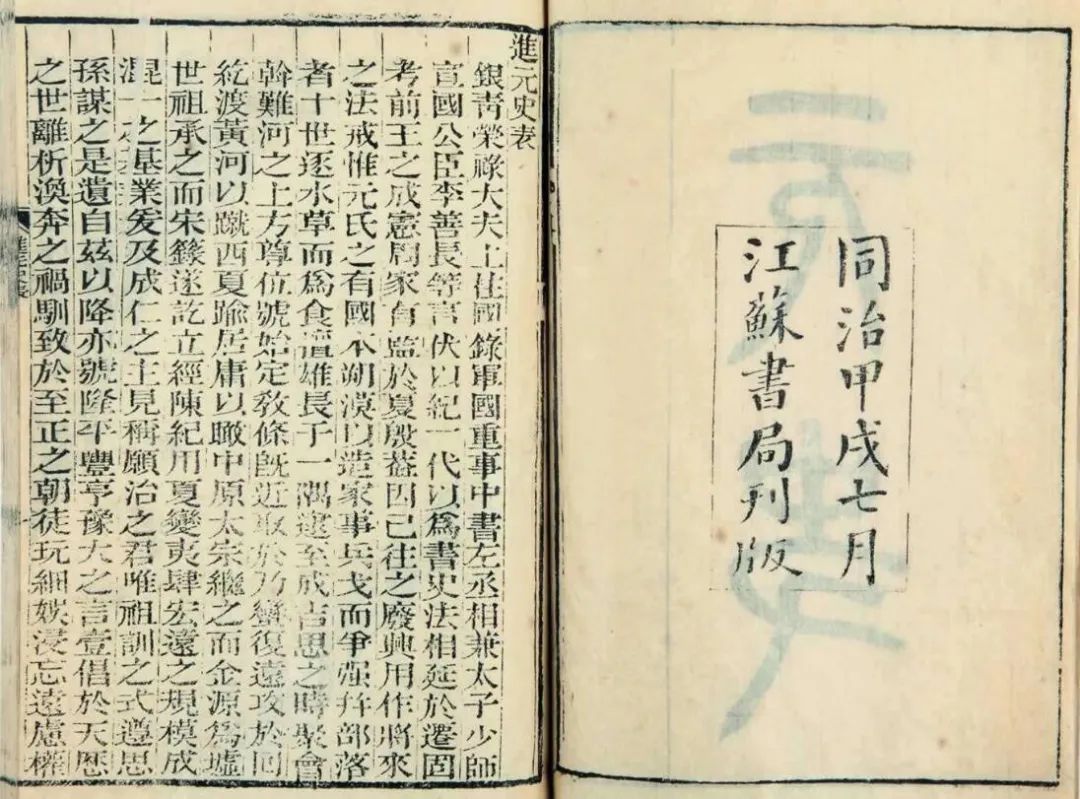 元史
同治甲戌七月
江蘇書局刊版
進元史表
銀青榮祿大夫上柱國錄軍國重事中書左丞相兼太子少師
宣國公臣李善長等言伏以紀一代以爲書史法相延於遷固
考前王之成憲周家有監於夏殷葢因已往之廢興用作將來
之法戒惟元氏之有國本朔漠以造家事兵戈而爭强幷部落
者十世逐水草而爲食擅雄長于一隅逮至成吉思之時聚會
斡難河之上方尊位號始定敎條旣近取於乃蠻復遠攻於回
紇渡黃河以蹴西夏踰居庸以瞰中原太宗繼之而金源爲墟
世祖承之而宋籙遂訖立經陳紀用夏變夷肆宏遠之規模成
混一之基業爰及成仁之主見稱願治之君唯祖訓之式遵思
孫謀之是遺自兹以降亦號隆平豐亨豫大之言壹倡於天歷
之世離析渙奔之禍馴致於至正之朝徒玩細娛浸忘遠慮權